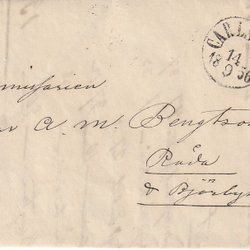 CARLS
14
18 9 56
missarien
A. M. Bengtso
Råda
& Björby